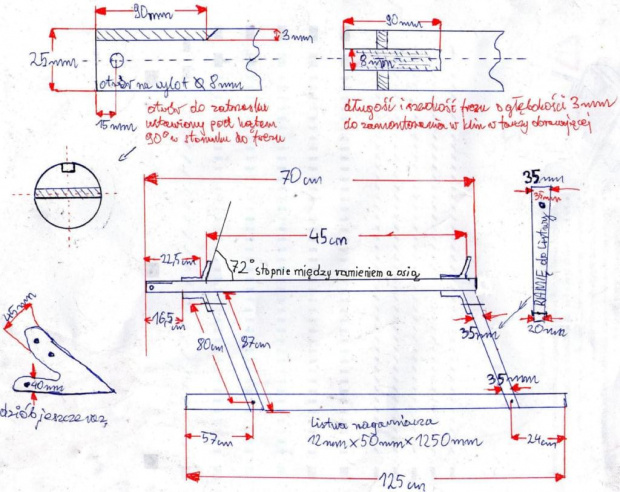 90mm
3mm
25mm
otwór na wylot Ø 8mm
15mm
otwór do zatrzasku
ustawiony pod kątem
90° w stosunku do frezu
90mm
8mm
długość i szerokość frezu o głębokości 3mm
do zamontowania w klin w tarczy obracającej
70cm
45cm
22,5cm
72° stopnie między ramieniem a osią
16,5cm
80cm
87cm
35mm
35mm
35mm
35mm
RAMIĘ do listwy
20mm
45mm
40mm
dziób jeszcze raz
listwa nagarniacza
12mm x 50mm x 1250mm
57cm
24cm
125cm